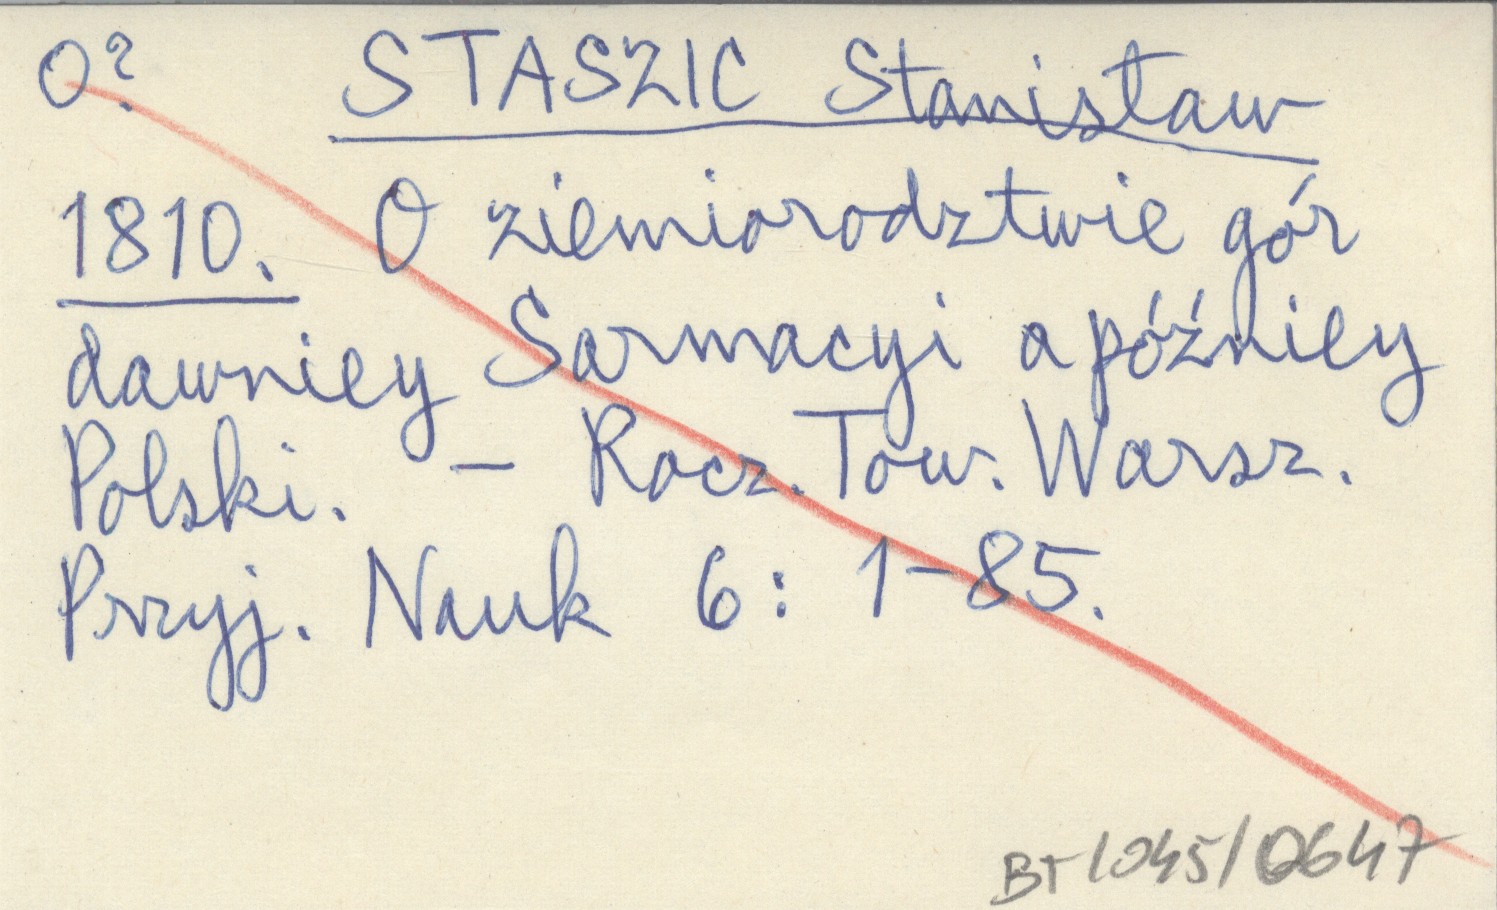 O? STASZIC Stanisław
1810. O ziemiorodztwie gór
dawniey Sarmacyi a późniey
Polski. – Rocz. Tow. Warsz.
Przyj. Nauk 6: 1–85.
BT/045/0647